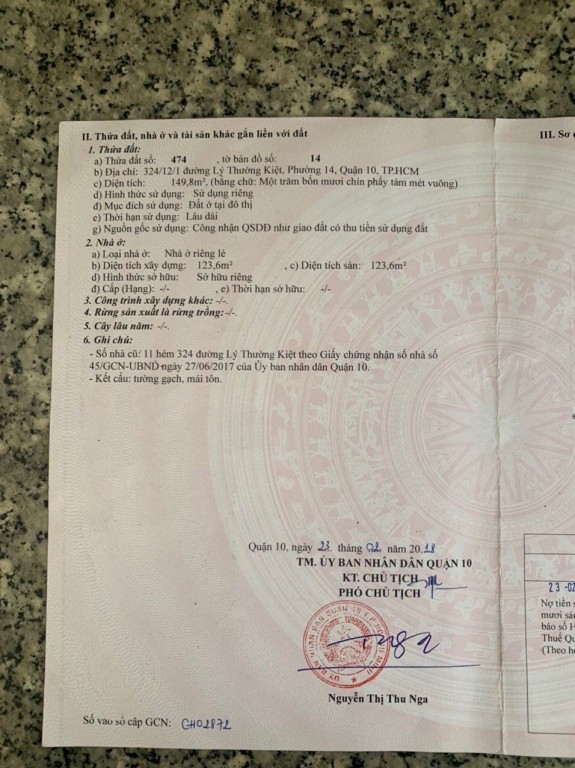 II. Thửa đất, nhà ở và tài sản khác gắn liền với đất
1. Thửa đất:
a) Thửa đất số: 474 , tờ bản đồ số: 14
b) Địa chỉ: 324/12/1 đường Lý Thường Kiệt, Phường 14, Quận 10, TP.HCM
c) Diện tích: 149,8m², (bằng chữ: Một trăm bốn mươi chín phẩy tám mét vuông)
d) Hình thức sử dụng: Sử dụng riêng
đ) Mục đích sử dụng: Đất ở tại đô thị
e) Thời hạn sử dụng: Lâu dài
g) Nguồn gốc sử dụng: Công nhận QSDĐ như giao đất có thu tiền sử dụng đất
2. Nhà ở:
a) Loại nhà ở: Nhà ở riêng lẻ
b) Diện tích xây dựng: 123,6m² , c) Diện tích sàn: 123,6m²
d) Hình thức sở hữu: Sở hữu riêng
đ) Cấp (Hạng): -/- , e) Thời hạn sở hữu: -/-
3. Công trình xây dựng khác: -/-.
4. Rừng sản xuất là rừng trồng:-/-.
5. Cây lâu năm: -/-.
6. Ghi chú:
- Số nhà cũ: 11 hẻm 324 đường Lý Thường Kiệt theo Giấy chứng nhận số nhà số
45/GCN-UBND ngày 27/06/2017 của Ủy ban nhân dân Quận 10.
- Kết cấu: tường gạch, mái tôn.
Quận 10, ngày 23 tháng 02 năm 2018
TM. ỦY BAN NHÂN DÂN QUẬN 10
KT. CHỦ TỊCH
PHÓ CHỦ TỊCH
Nguyễn Thị Thu Nga
Số vào sổ cấp GCN: CH02872
III. Sơ
23-02
Nợ tiền s
mươi sá
báo số H
Thuế Qu
(Theo h